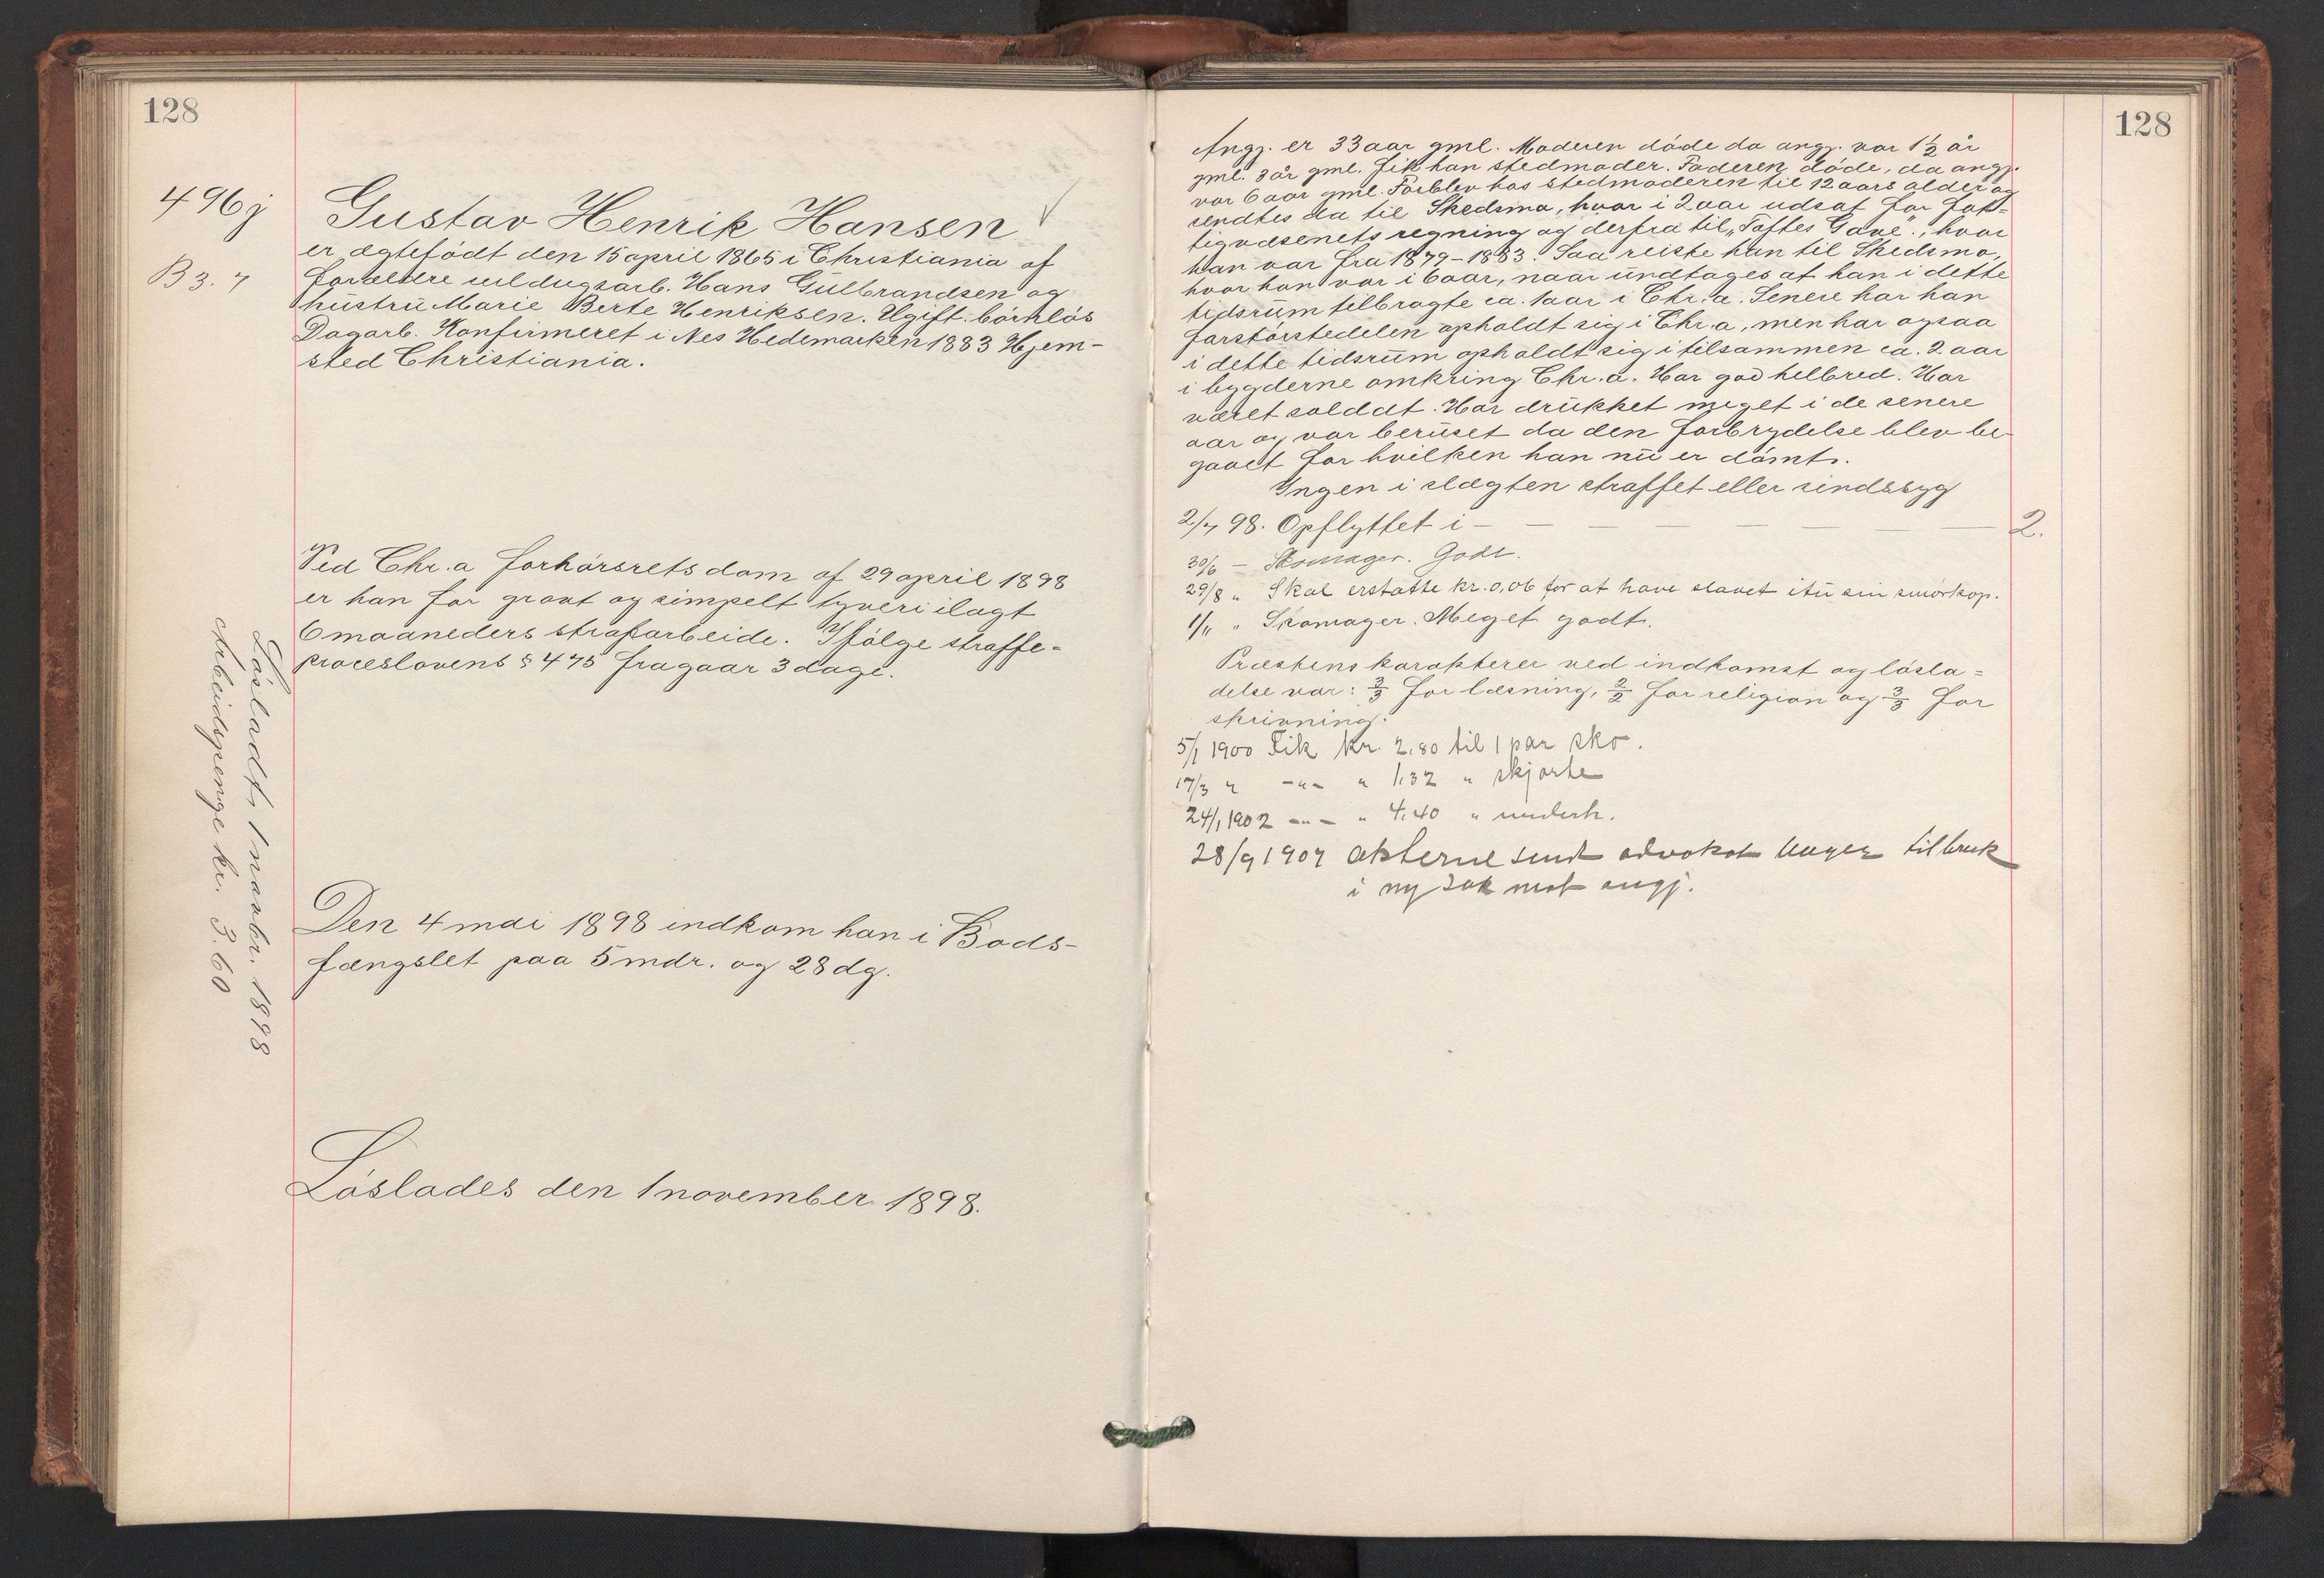 128
496j
B 3. 7
Gustav Henrik Hansen
er ægtefödt den 15 april 1865 i Christiania af
forældre uldugsarb. Hans Gulbrandsen og
hustru Marie Berte Henriksen. Ugift. börnlös
Dagarb. Konfirmeret i Nes Hedemarken 1883 Hjem-
sted Christiania.
Ved Chr.a forhörsrets dom af 29 april 1898
er han for grovt og simpelt tyveri ilagt
6 maaneders strafarbeide. Ifölge straffe-
proceslovens § 475 fragaar 3 dage.
Den 4 mai 1898 indkom han i Bods-
fængslet paa 5 mdr. og 28 dg.
Löslades den 1 november 1898.
Lösladt 1 novbr. 1898
Arbeidspenge kr. 3.60
128
Angj. er 33 aar gml. Moderen döde da angj. var 1½ år
gml. 3 år gml. fik han stedmoder. Faderen döde, da angj.
var 6 aar gml. Forblev hos stedmoderen til 12 aars alder og
sendtes da til Skedsmo, hvor i 2 aar udsat for fat-
tigvæsenets regning og derfra til "Toftes Gave", hvor
han var fra 1879-1883. Saa reiste han til Skedsmo,
hvor han var i 6 aar, naar undtages at han i dette
tidsrum tilbragte ca. 1 aar i Chr.a. Senere har han
forstörstedelen opholdt sig i Chr.a, men har ogsaa
i dette tidsrum opholdt sig i tilsammen ca. 2 aar
i bygderne omkring Chr.a. Har god helbred. Har
været soldat. Har drukket meget i de senere
aar og var beruset da den forbrydelse blev be-
gaaet for hvilken han nu er dömt.
Ingen i slægten straffet eller sindssyg
2/7 98. Opflyttet i — — — — — — — 2.
30/6 — Skomager. Godt.
29/8 " Skal erstatte kr. 0,06 for at have slaaet itu sin smörkop.
1/11 " Skomager. Meget godt.
Præstens karakterer ved indkomst og lösla-
delse var: 3/3 for læsning, 2/2 for religion og 3/3 for
skrivning.
5/1 1900 Fik kr. 2,80 til 1 par sko.
17/3 " -"- " 1,32 " skjorte
24/1 1902 -"- " 4,40 " underk.
28/9 1907 akterne sendt advokat Unger til bruk
i ny sak mot angj.